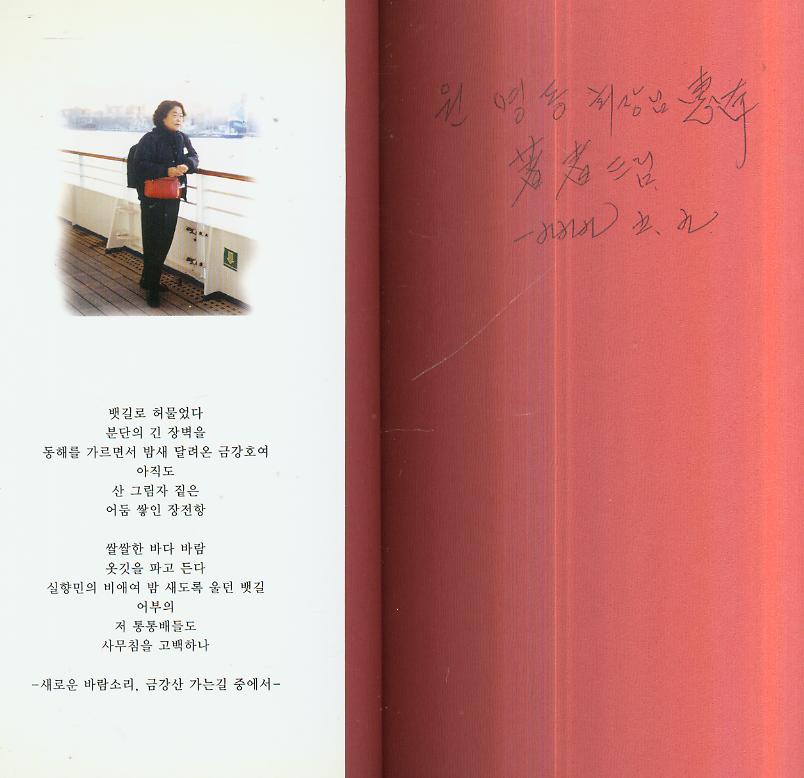 뱃길로 허물었다
분단의 긴 장벽을
동해를 가르면서 밤새 달려온 금강호여
아직도
산 그림자 짙은
어둠 쌓인 장전항
쌀쌀한 바다 바람
옷깃을 파고 든다
실향민의 비애여 밤 새도록 울던 뱃길
어부의
저 통통배들도
사무침을 고백하나
-새로운 바람소리, 금강산 가는길 중에서-
원 명동 회장님 惠存
著者 드림